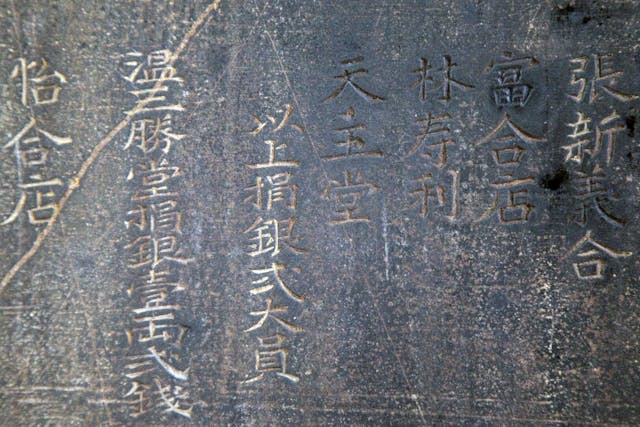 張新義合
富合店
林寿利
天主堂
以上捐銀弍大員
溫三勝堂捐銀壹両弍錢
怡合店